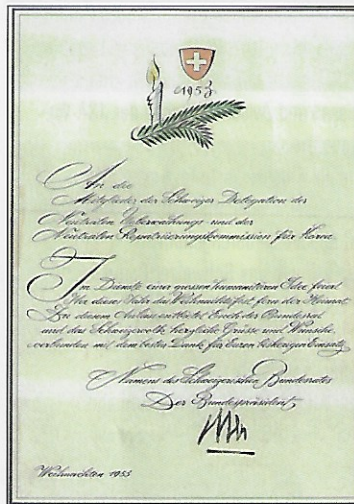 1953
An die
Mitglieder der Schweizer Delegation der
Neutralen Ueberwachungs- und der
Neutralen Repatriierungskommission für Korea
Im Dienste einer grossen humanitären Idee feiert
Ihr dieses Jahr das Weihnachtsfest fern der Heimat.
Zu diesem Anlass entbietet Euch der Bundesrat
und das Schweizervolk herzliche Grüsse und Wünsche,
verbunden mit dem besten Dank für Euren bisherigen Einsatz.
Namens des Schweizerischen Bundesrates
Der Bundespräsident,
Weihnachten 1953